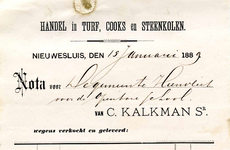 HANDEL in TURF, COOKS en STEENKOLEN.
NIEUWESLUIS, DEN 18 Januarij 1889
Nota voor De gemeente Heenvliet
voor de Openbare school
VAN C. KALKMAN Sr.
wegens verkocht en geleverd: